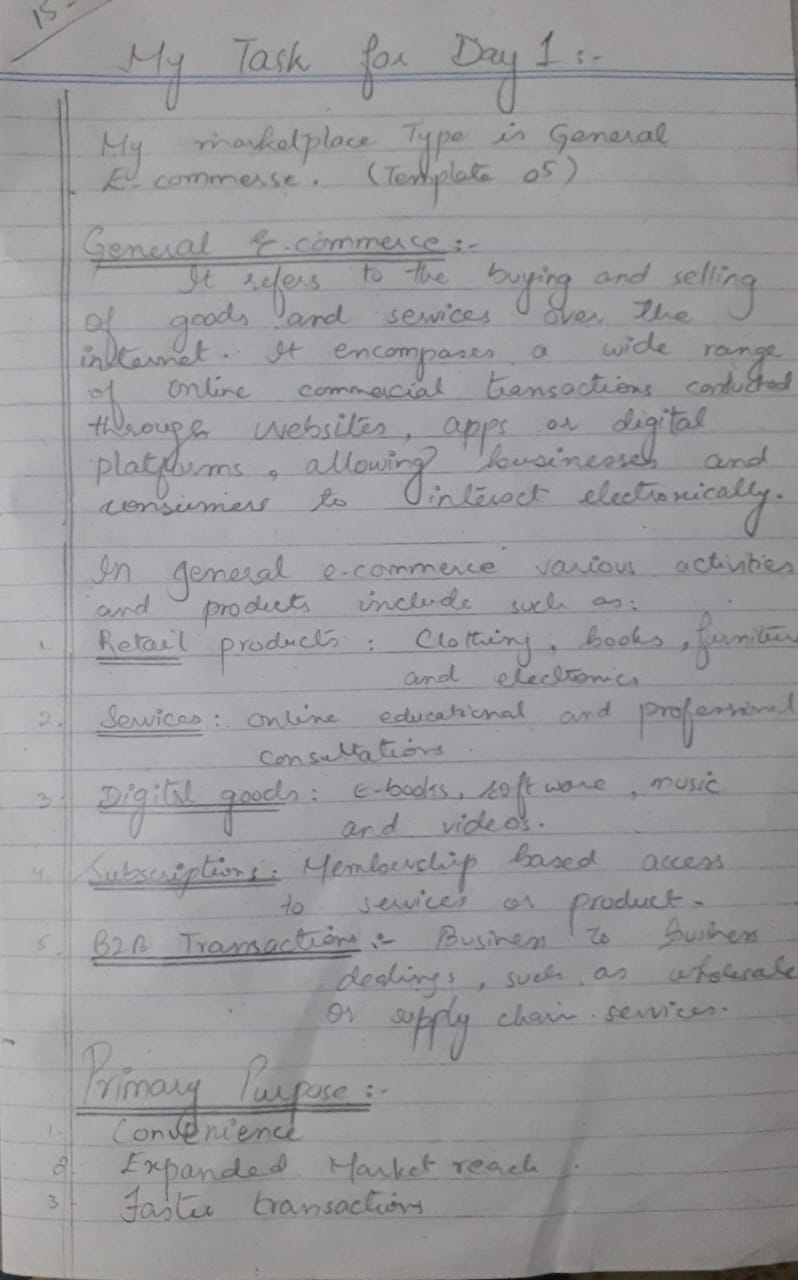 15
My Task for Day 1 :-
My marketplace Type is General
E-commerse. (Template 05)
General E-commerce :-
It refers to the buying and selling
of goods and services over the
internet. It encompases a wide range
of online commercial transactions conducted
through websites, apps or digital
platforms, allowing businesses and
consumers to interact electronically.
In general e-commerce various activities
and products include such as:
1. Retail products : Clothing, books, furniture
and electronics
2. Services : online educational and professional
consultations
3. Digital goods : E-books, software, music
and videos.
4. Subscriptions : Membership based access
to services or product.
5. B2B Transactions :- Business to Business
dealings, such as wholesale
or supply chain services.
Primary Purpose :-
1. Convenience
2. Expanded Market reach.
3. Faster transactions